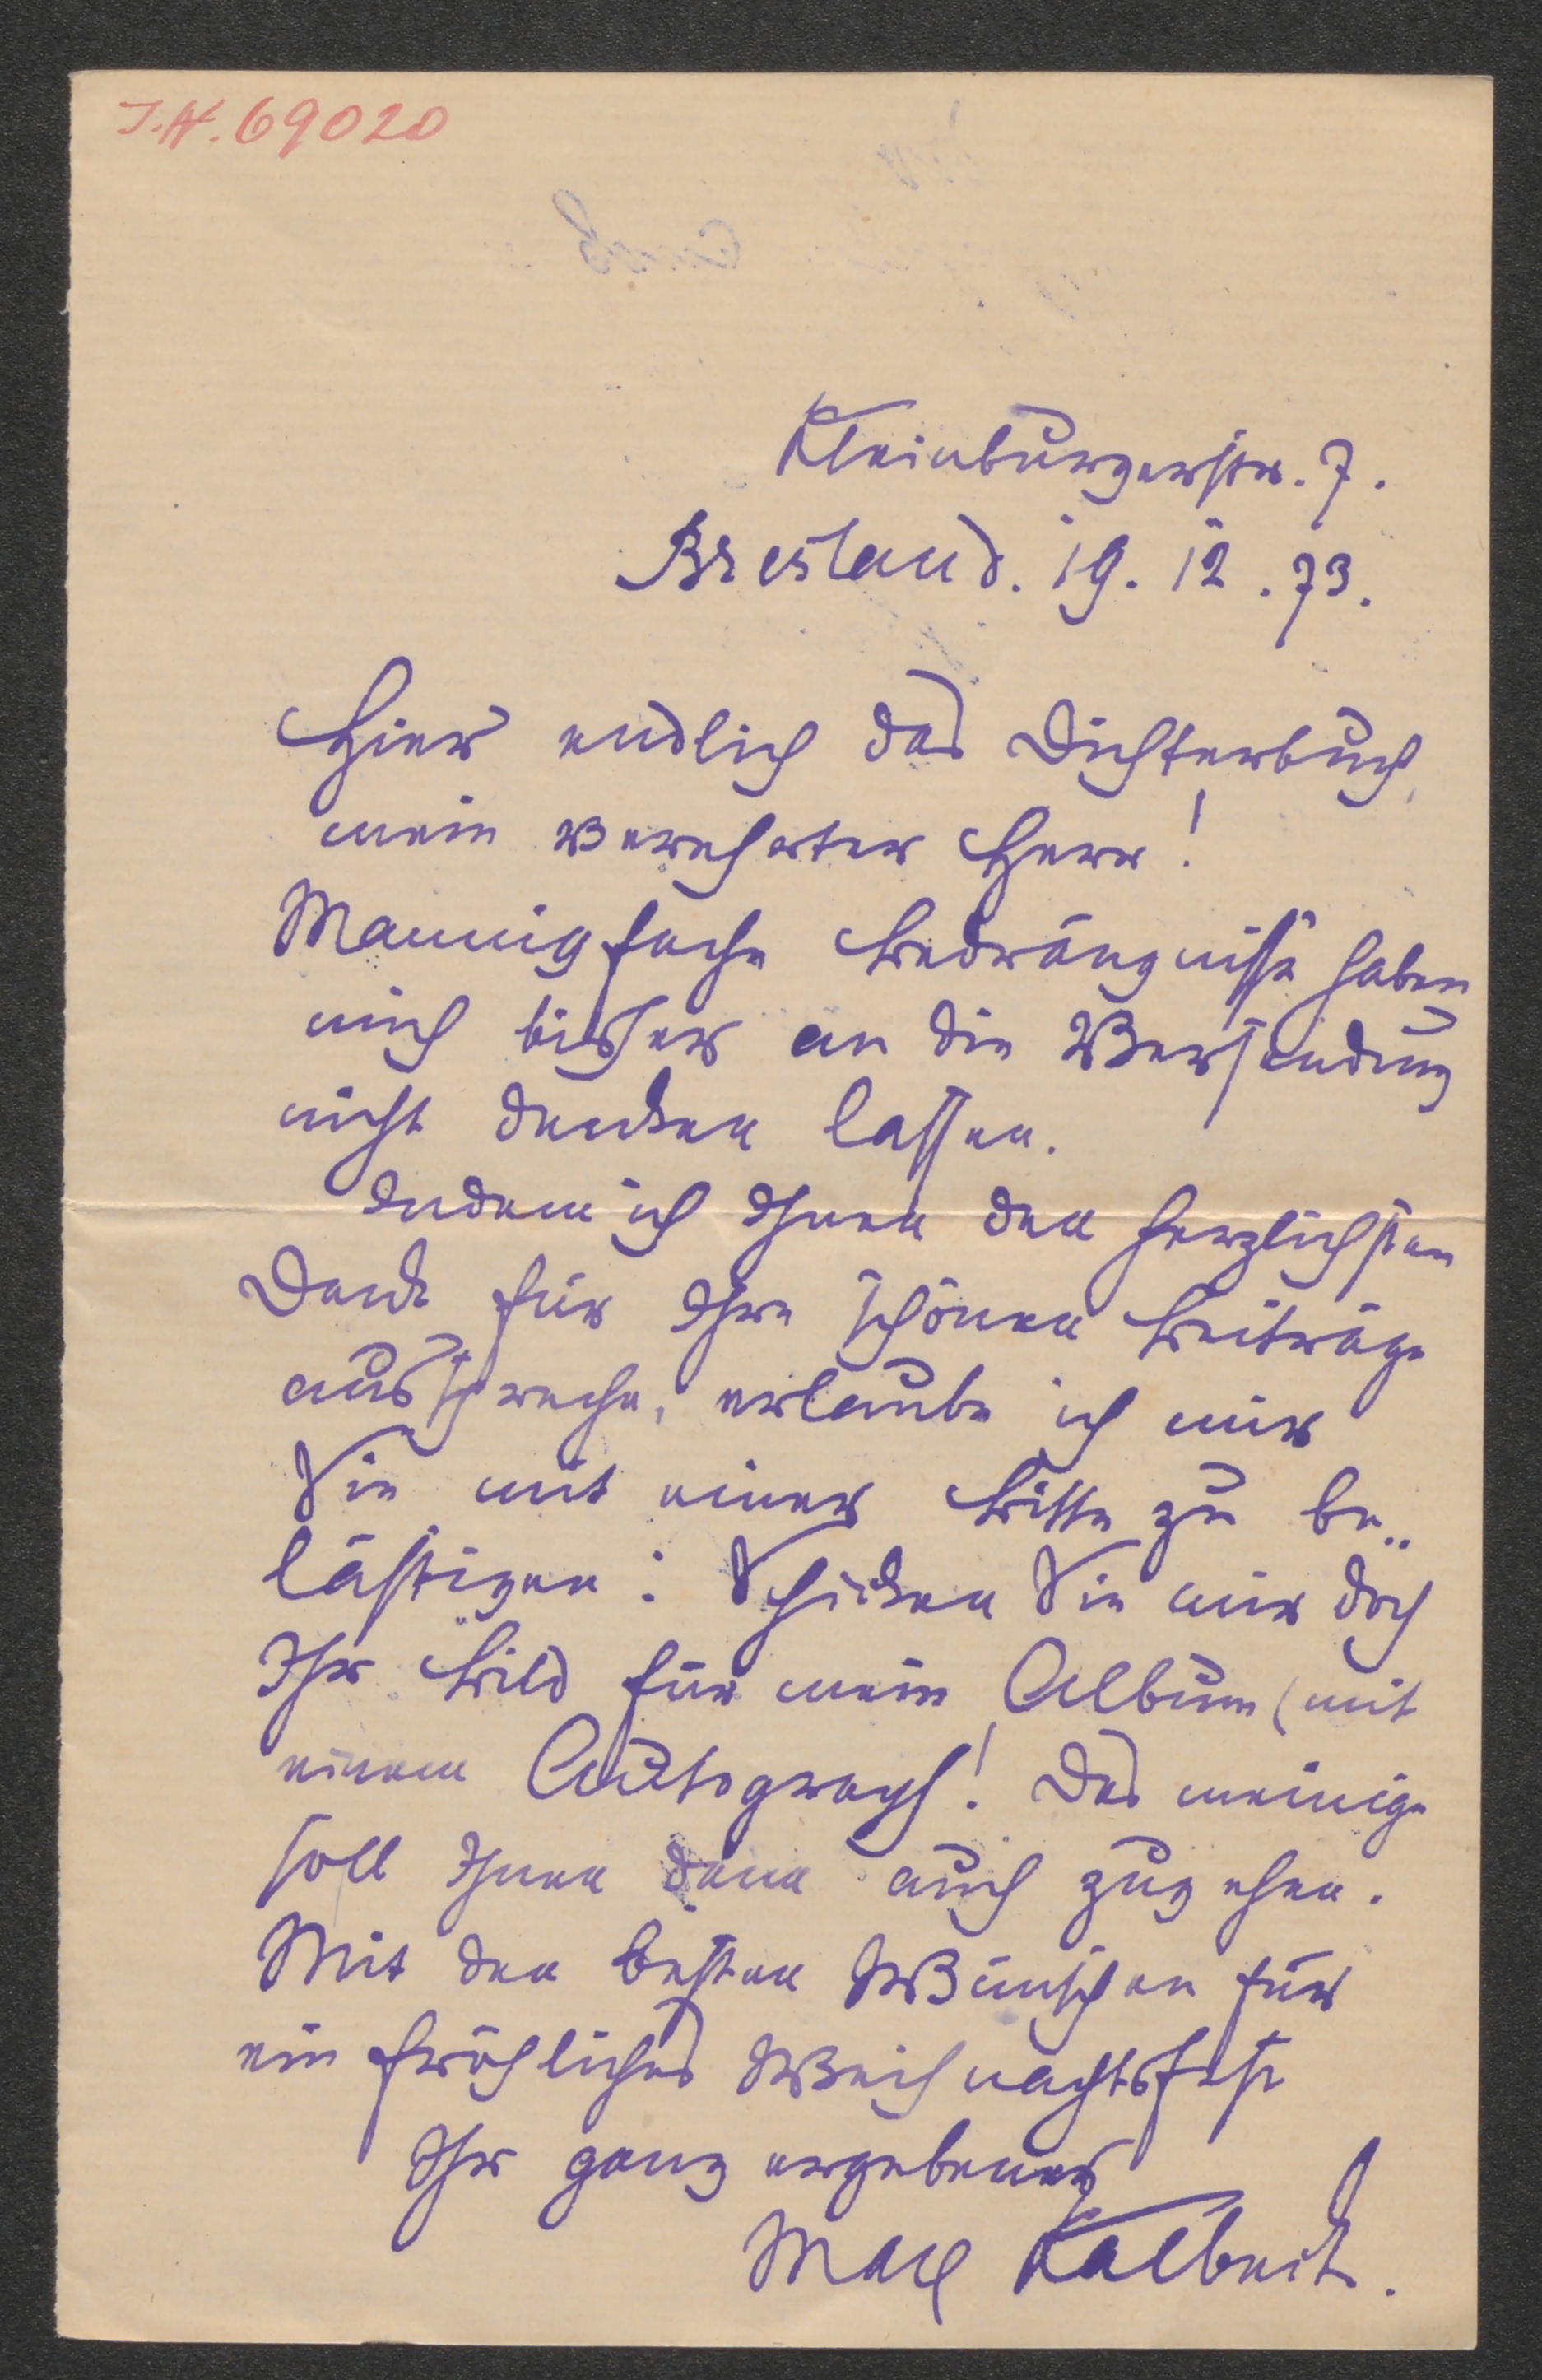 I.N. 69020
Kleinburgerstr. 7.
Breslau d. 19. 12. 73.
Hier endlich das Dichterbuch,
mein verehrter Herr!
Mannigfache Bedrängnisse haben
mich bisher an die Versendung
nicht denken lassen.
Indem ich Ihnen den herzlichsten
Dank für Ihre schönen Beiträge
ausspreche, erlaube ich mir
Sie mit einer Bitte zu be-
lästigen: Schicken Sie mir doch
Ihr Bild für mein Album (mit
einem Autograph! Das meinige
soll Ihnen dann auch zugehen.
Mit den besten Wünschen für
ein fröhliches Weihnachtsfest
Ihr ganz ergebener
Max Kalbeck.